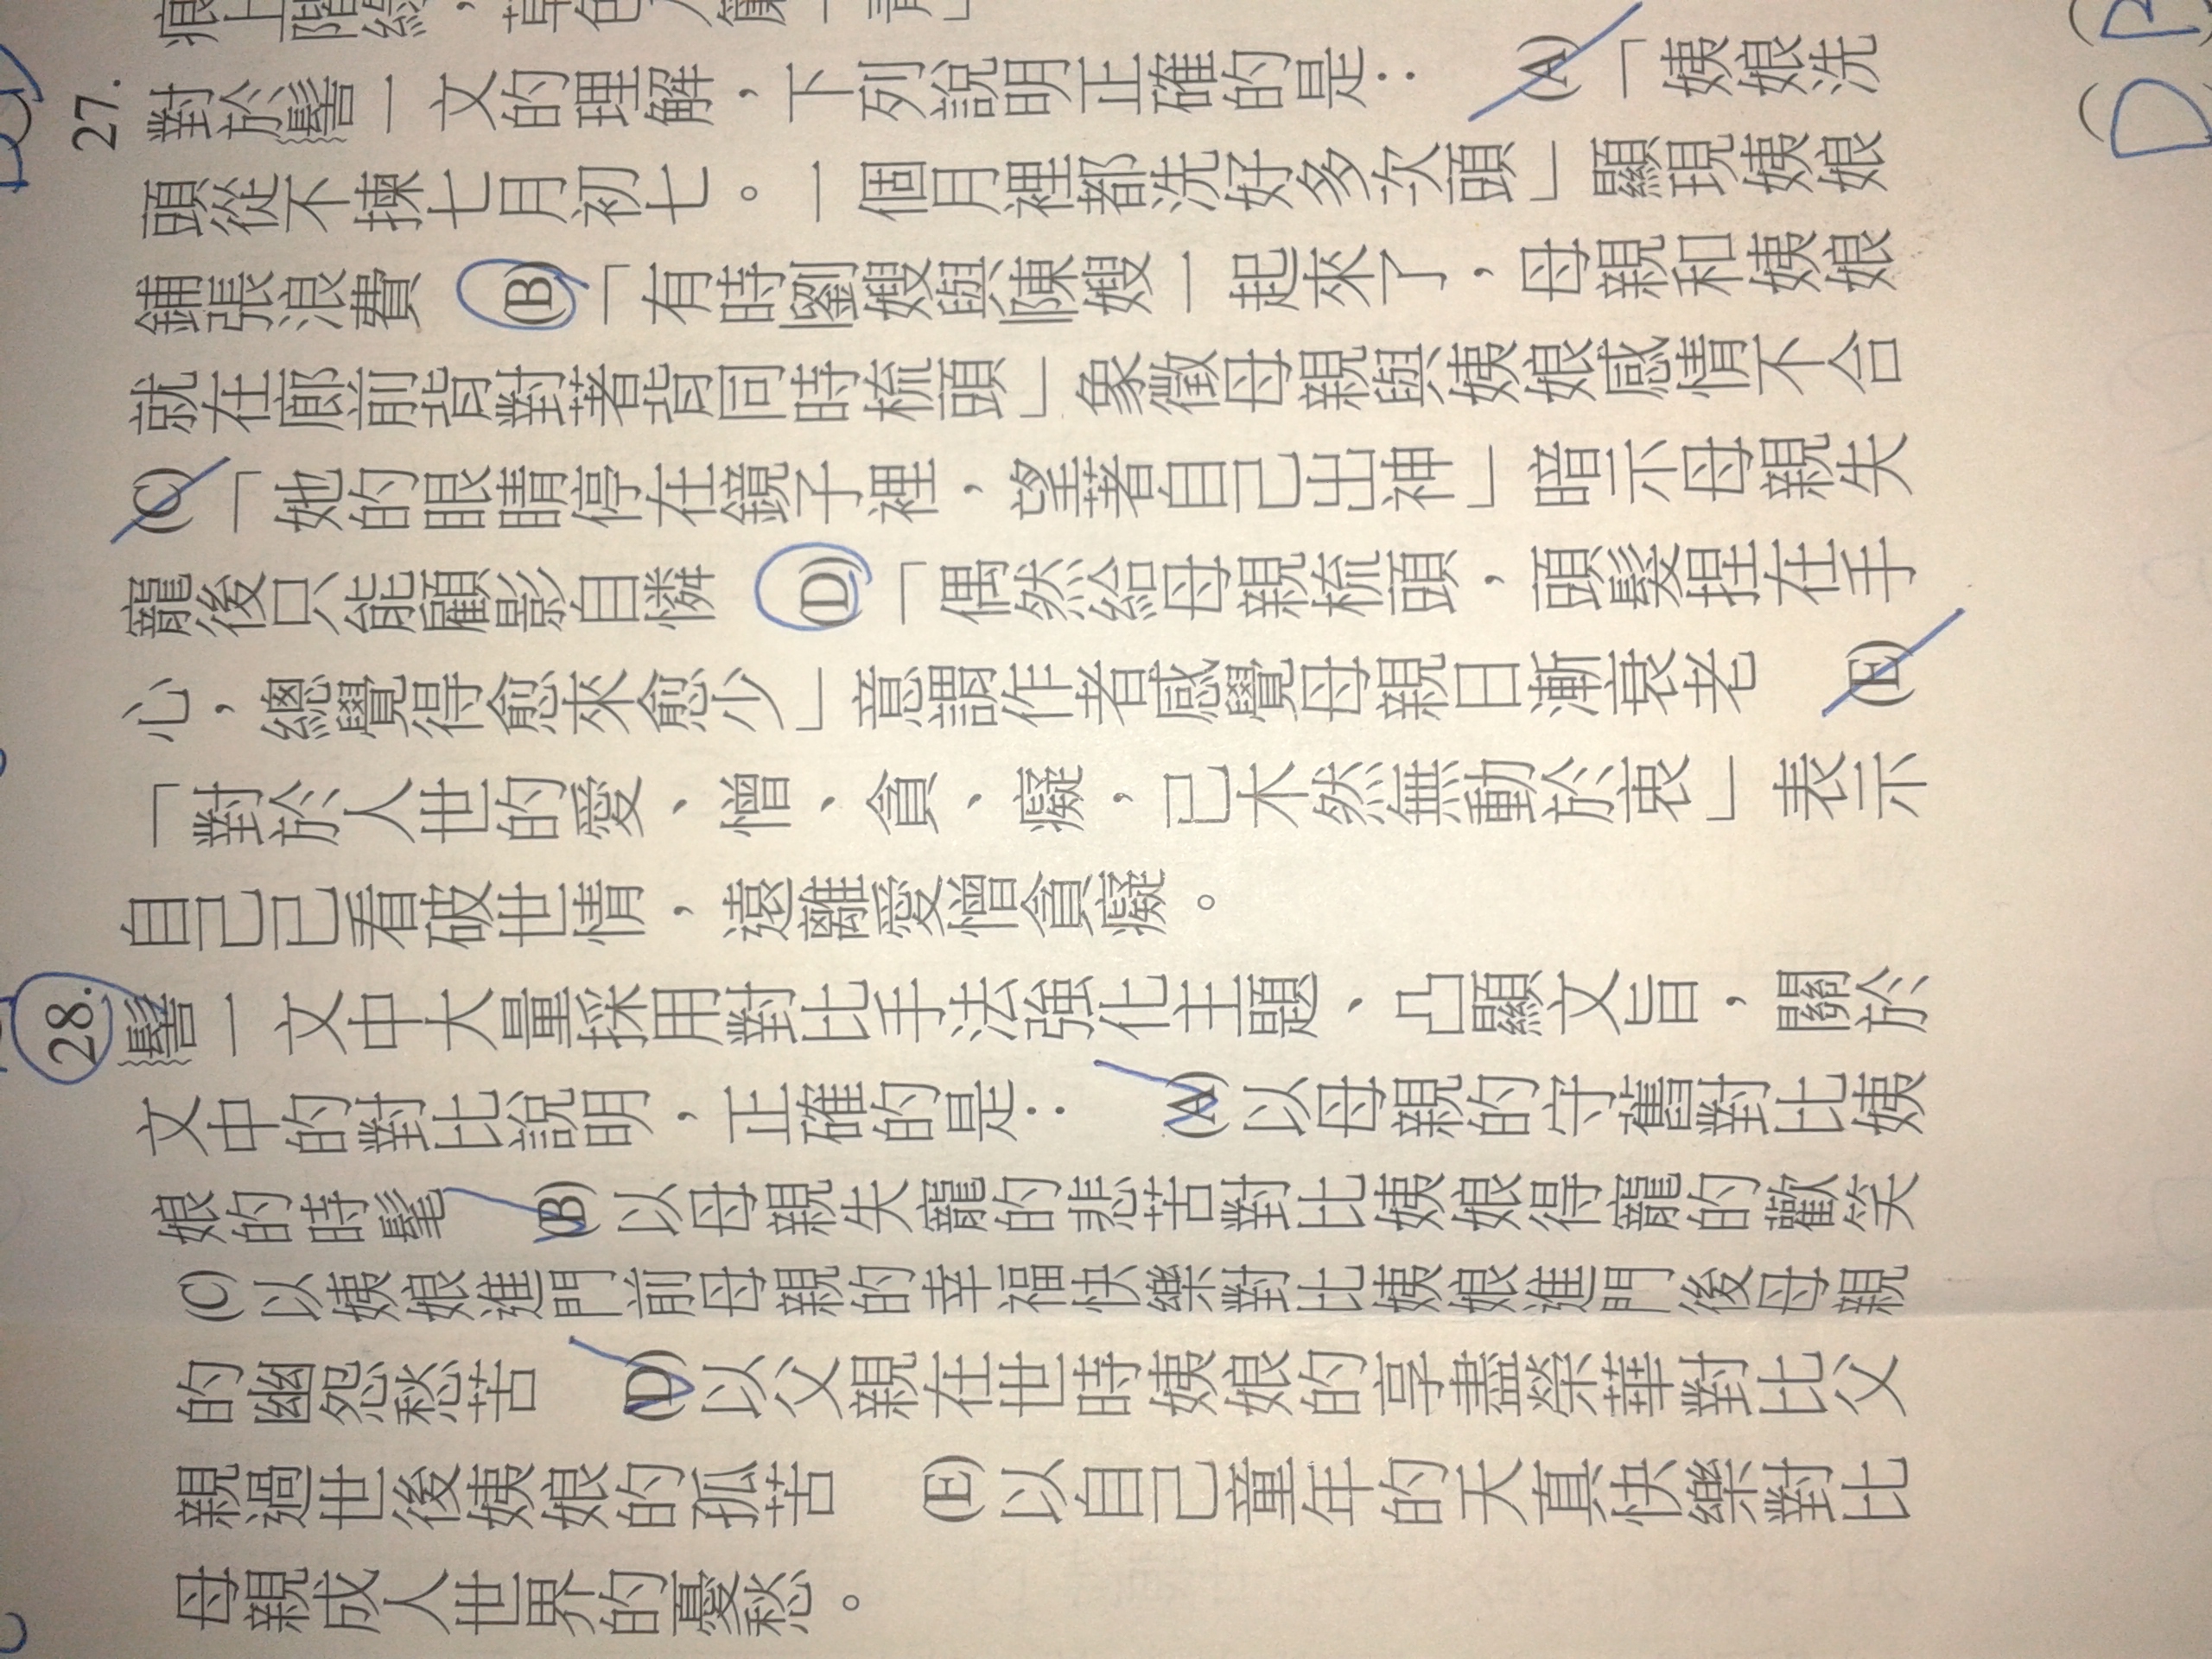 痕上階綠，草色入簾青」
27. 對於髻一文的理解，下列說明正確的是： (A)「姨娘洗
頭從不揀七月初七。一個月裡都洗好多次頭」顯現姨娘
鋪張浪費 (B)「有時劉嫂與陳嫂一起來了，母親和姨娘
就在廊前背對著背同時梳頭」象徵母親與姨娘感情不合
(C)「她的眼睛停在鏡子裡，望著自己出神」暗示母親失
寵後只能顧影自憐 (D)「偶然給母親梳頭，頭髮捏在手
心，總覺得愈來愈少」意謂作者感覺母親日漸衰老 (E)
「對於人世的愛、憎、貪、癡，已木然無動於衷」表示
自己已看破世情，遠離愛憎貪癡。
28. 髻一文中大量採用對比手法強化主題、凸顯文旨，關於
文中的對比說明，正確的是： (A)以母親的守舊對比姨
娘的時髦 (B)以母親失寵的悲苦對比姨娘得寵的歡笑
(C)以姨娘進門前母親的幸福快樂對比姨娘進門後母親
的幽怨愁苦 (D)以父親在世時姨娘的享盡榮華對比父
親過世後姨娘的孤苦 (E)以自己童年的天真快樂對比
母親成人世界的憂愁。